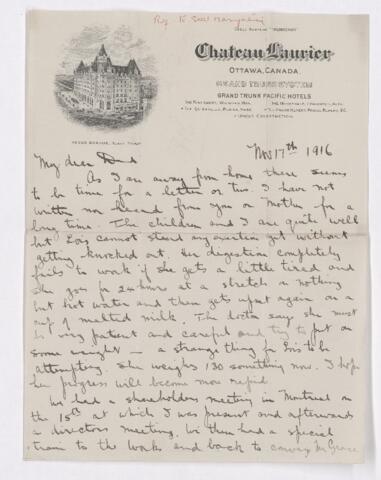 Chateau Laurier
OTTAWA, CANADA.
GRAND TRUNK SYSTEM
GRAND TRUNK PACIFIC HOTELS
Nov 17th 1916
My dear Dad
As I am away from home there seems
to be time for a letter or two. I have not
written nor heard from you or Mother for a
long time. The children and I are quite well
but Lois cannot stand any exertion yet without
getting knocked out. Her digestion completely
fails to work if she gets a little tired and
she goes for 24 hours at a stretch on nothing
but hot water and then gets upset again on a
cup of malted milk. The doctor says she must
be very patient and careful and try to put on
some weight — a strange thing for Lois to be
attempting. She weighs 130 something now. I hope
her progress will become more rapid.
We had a shareholders meeting in Montreal on
the 15th at which I was present and afterwards
a directors meeting. We then had a special
train to the works and back to convey Mr Grace